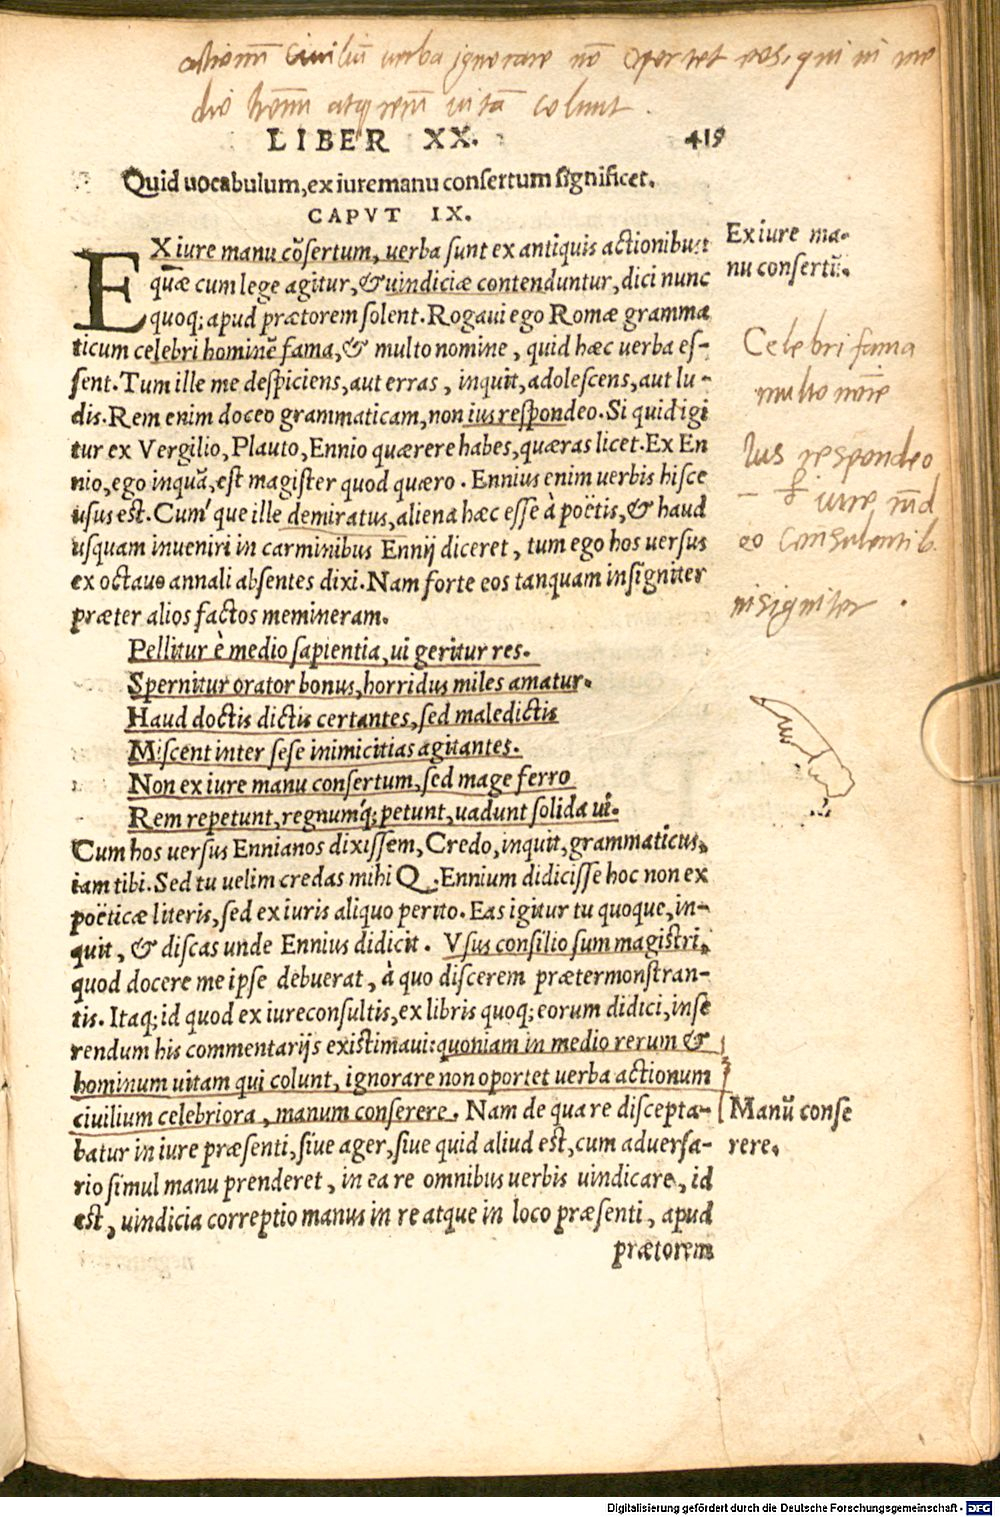 actionũ Ciuiliũ uerba ignorare nõ oportet eos, qui in me
dio hoĩm atq; rerũ uitã colunt.
LIBER XX. 419
Quid uocabulum, ex iure manu consertum significet.
CAPVT IX.
EX iure manu cõsertum, uerba sunt ex antiquis actionibus:
quæ cum lege agitur, & uindiciæ contenduntur, dici nunc
quoq; apud prætorem solent. Rogaui ego Romæ gramma
ticum celebri hominẽ fama, & multo nomine, quid hæc uerba es-
sent. Tum ille me despiciens, aut erras, inquit, adolescens, aut lu-
dis. Rem enim doceo grammaticam, non ius respondeo. Si quid igi
tur ex Vergilio, Plauto, Ennio quærere habes, quæras licet. Ex En
nio, ego inquã, est magister quod quæro. Ennius enim uerbis hisce
usus est. Cum'que ille demiratus, aliena hæc esse à poëtis, & haud
usquam inueniri in carminibus Ennij diceret, tum ego hos uersus
ex octauo annali absentes dixi. Nam forte eos tanquam insigniter
præter alios factos memineram.
Pellitur è medio sapientia, ui geritur res.
Spernitur orator bonus, horridus miles amatur.
Haud doctis dictis certantes, sed maledictis
Miscent inter sese inimicitias agitantes.
Non ex iure manu consertum, sed mage ferro
Rem repetunt, regnum'q; petunt, uadunt solida ui.
Cum hos uersus Ennianos dixissem, Credo, inquit, grammaticus,
iam tibi. Sed tu uelim credas mihi Q. Ennium didicisse hoc non ex
poëticæ literis, sed ex iuris aliquo perito. Eas igitur tu quoque, in-
quit, & discas unde Ennius didicit. Vsus consilio sum magistri,
quod docere me ipse debuerat, à quo discerem prætermonstran-
tis. Itaq; id quod ex iureconsultis, ex libris quoq; eorum didici, inse
rendum his commentarijs existimaui: quoniam in medio rerum &
hominum uitam qui colunt, ignorare non oportet uerba actionum
ciuilium celebriora, manum conserere. Nam de qua re discepta-
batur in iure præsenti, siue ager, siue quid aliud est, cum aduersa-
rio simul manu prenderet, in ea re omnibus uerbis uindicare, id
est, uindicia correptio manus in re atque in loco præsenti, apud
prætorem
Ex iure ma-
nu consertũ.
Celebri fama
multo noĩe
Ius respondeo
iure
eo Consulentib.
insigniter.
Manũ conse
rere.
Digitalisierung gefördert durch die Deutsche Forschungsgemeinschaft - DFG